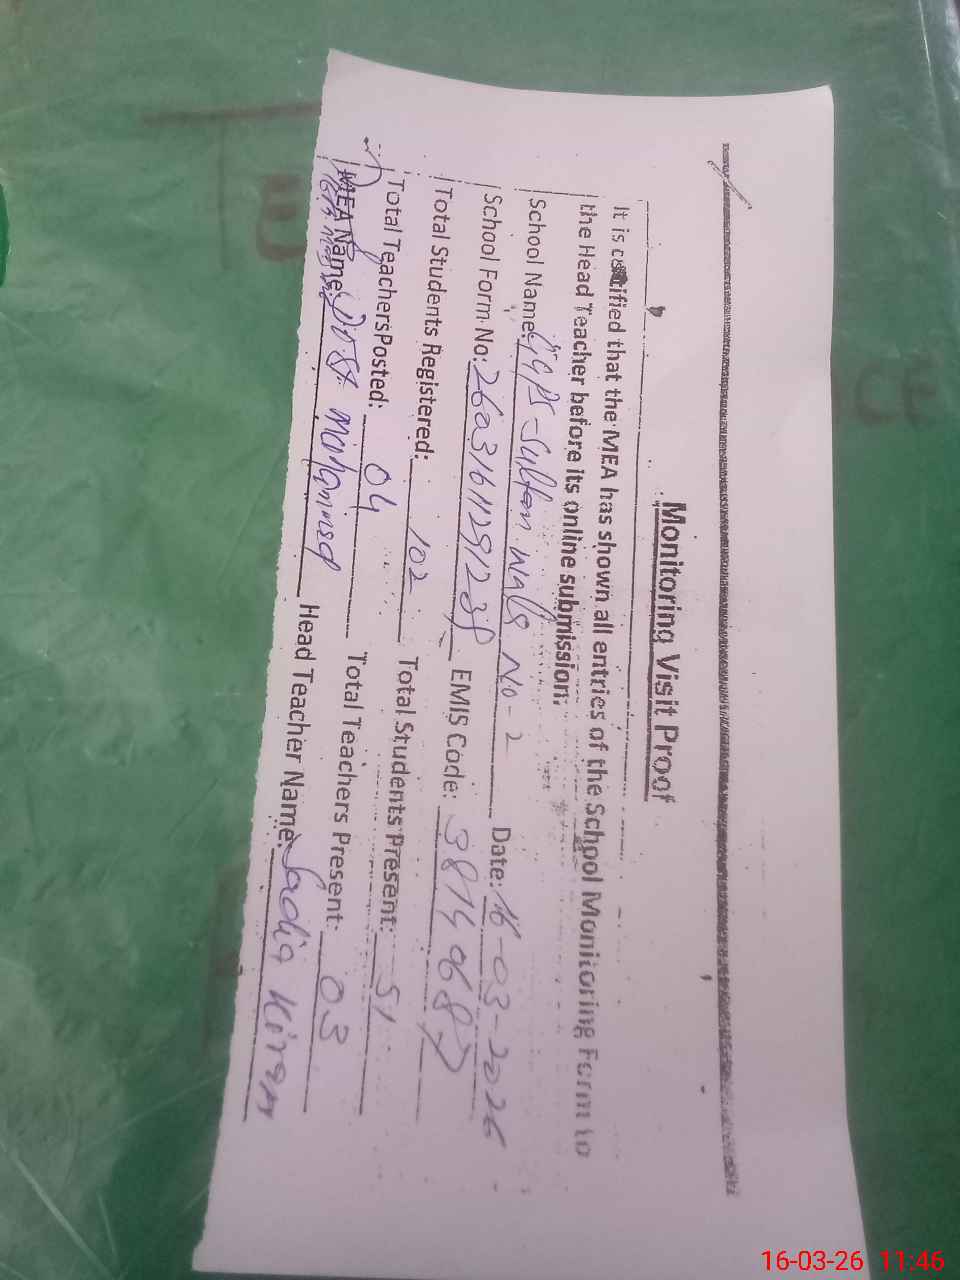 Monitoring Visit Proof
It is certified that the MEA has shown all entries of the School Monitoring Form to
the Head Teacher before its online submission.
School Name: GGPS-Sultan wala No-2 Date: 16-03-2026
School Form No: EMIS Code:
Total Students Registered: 102 Total Students Present: 51
Total Teachers Posted: 04 Total Teachers Present: 03
MEA Name: Dost Mohammad Head Teacher Name: Sadia Kiran
16-03-26 11:46